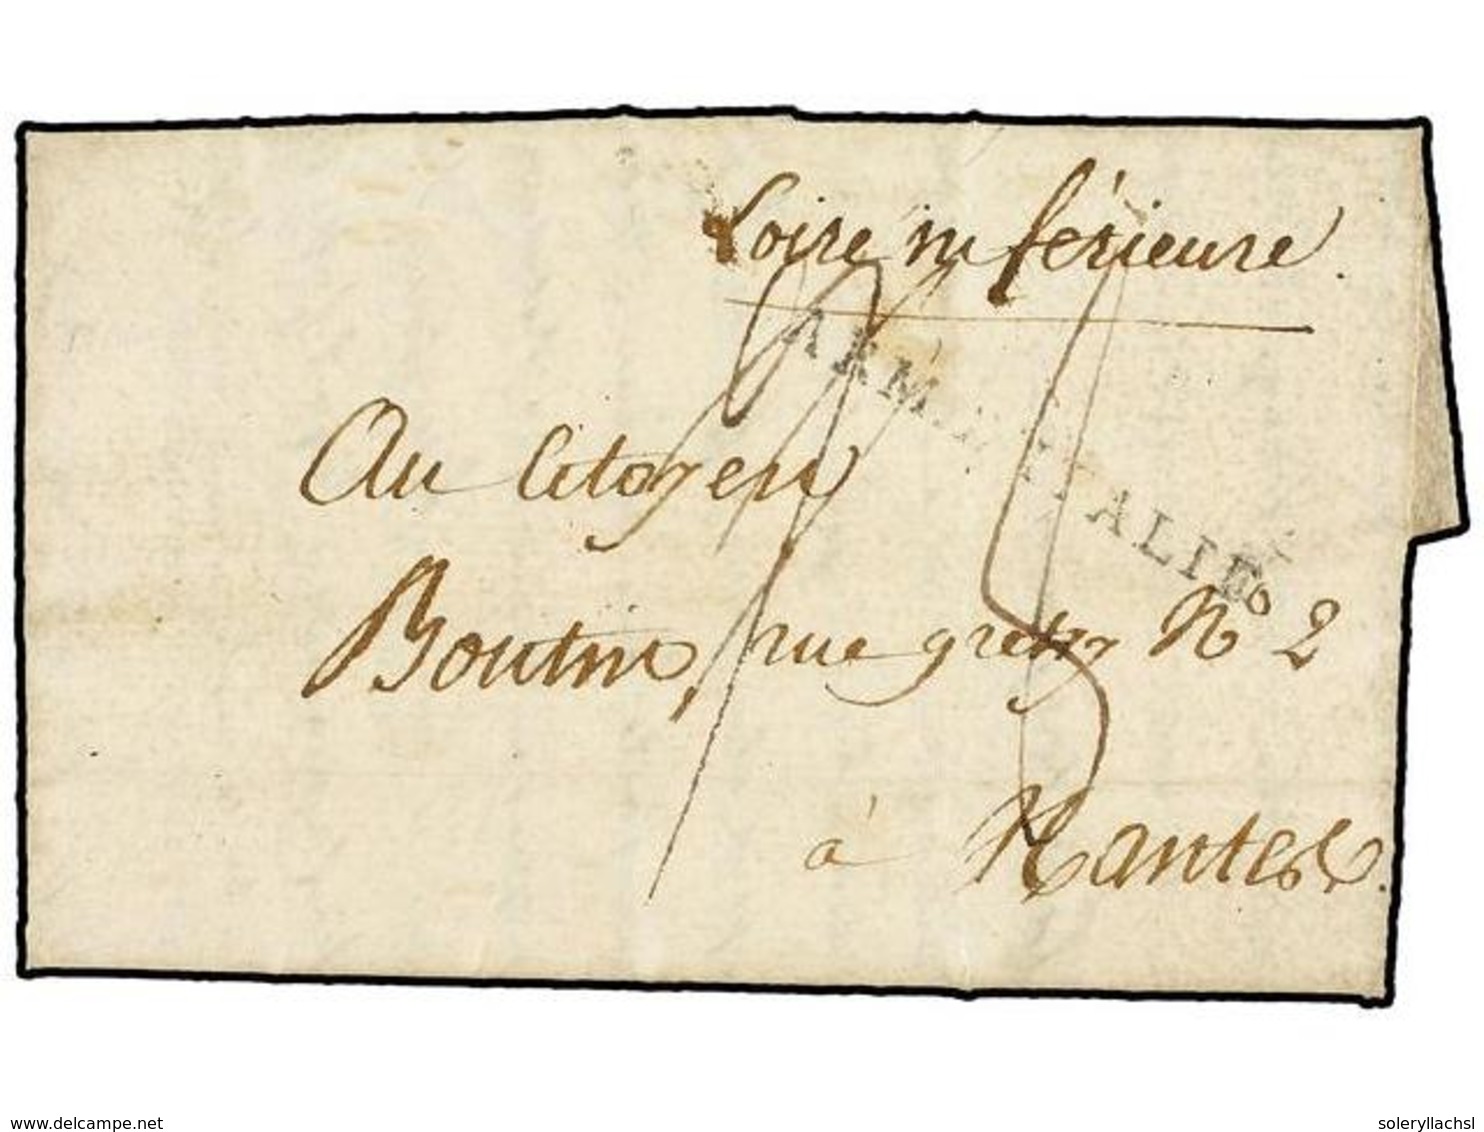 Loire inférieure.
ARM. D'ITALIE
Au Citoyen
Boutin, rue gretry Nº 2
à Nantes.
delcampe.net
soleryllachsl